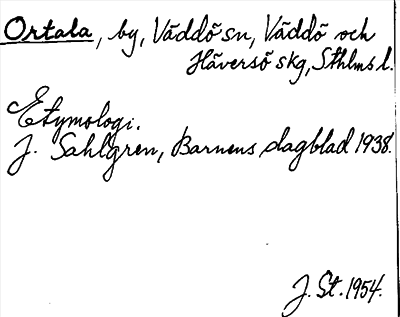 Ortala, by, Väddö sn, Väddö och
Häverö skg, Sthlms l.
Etymologi.
J. Sahlgren, Barnens dagblad 1938.
J. St. 1954.